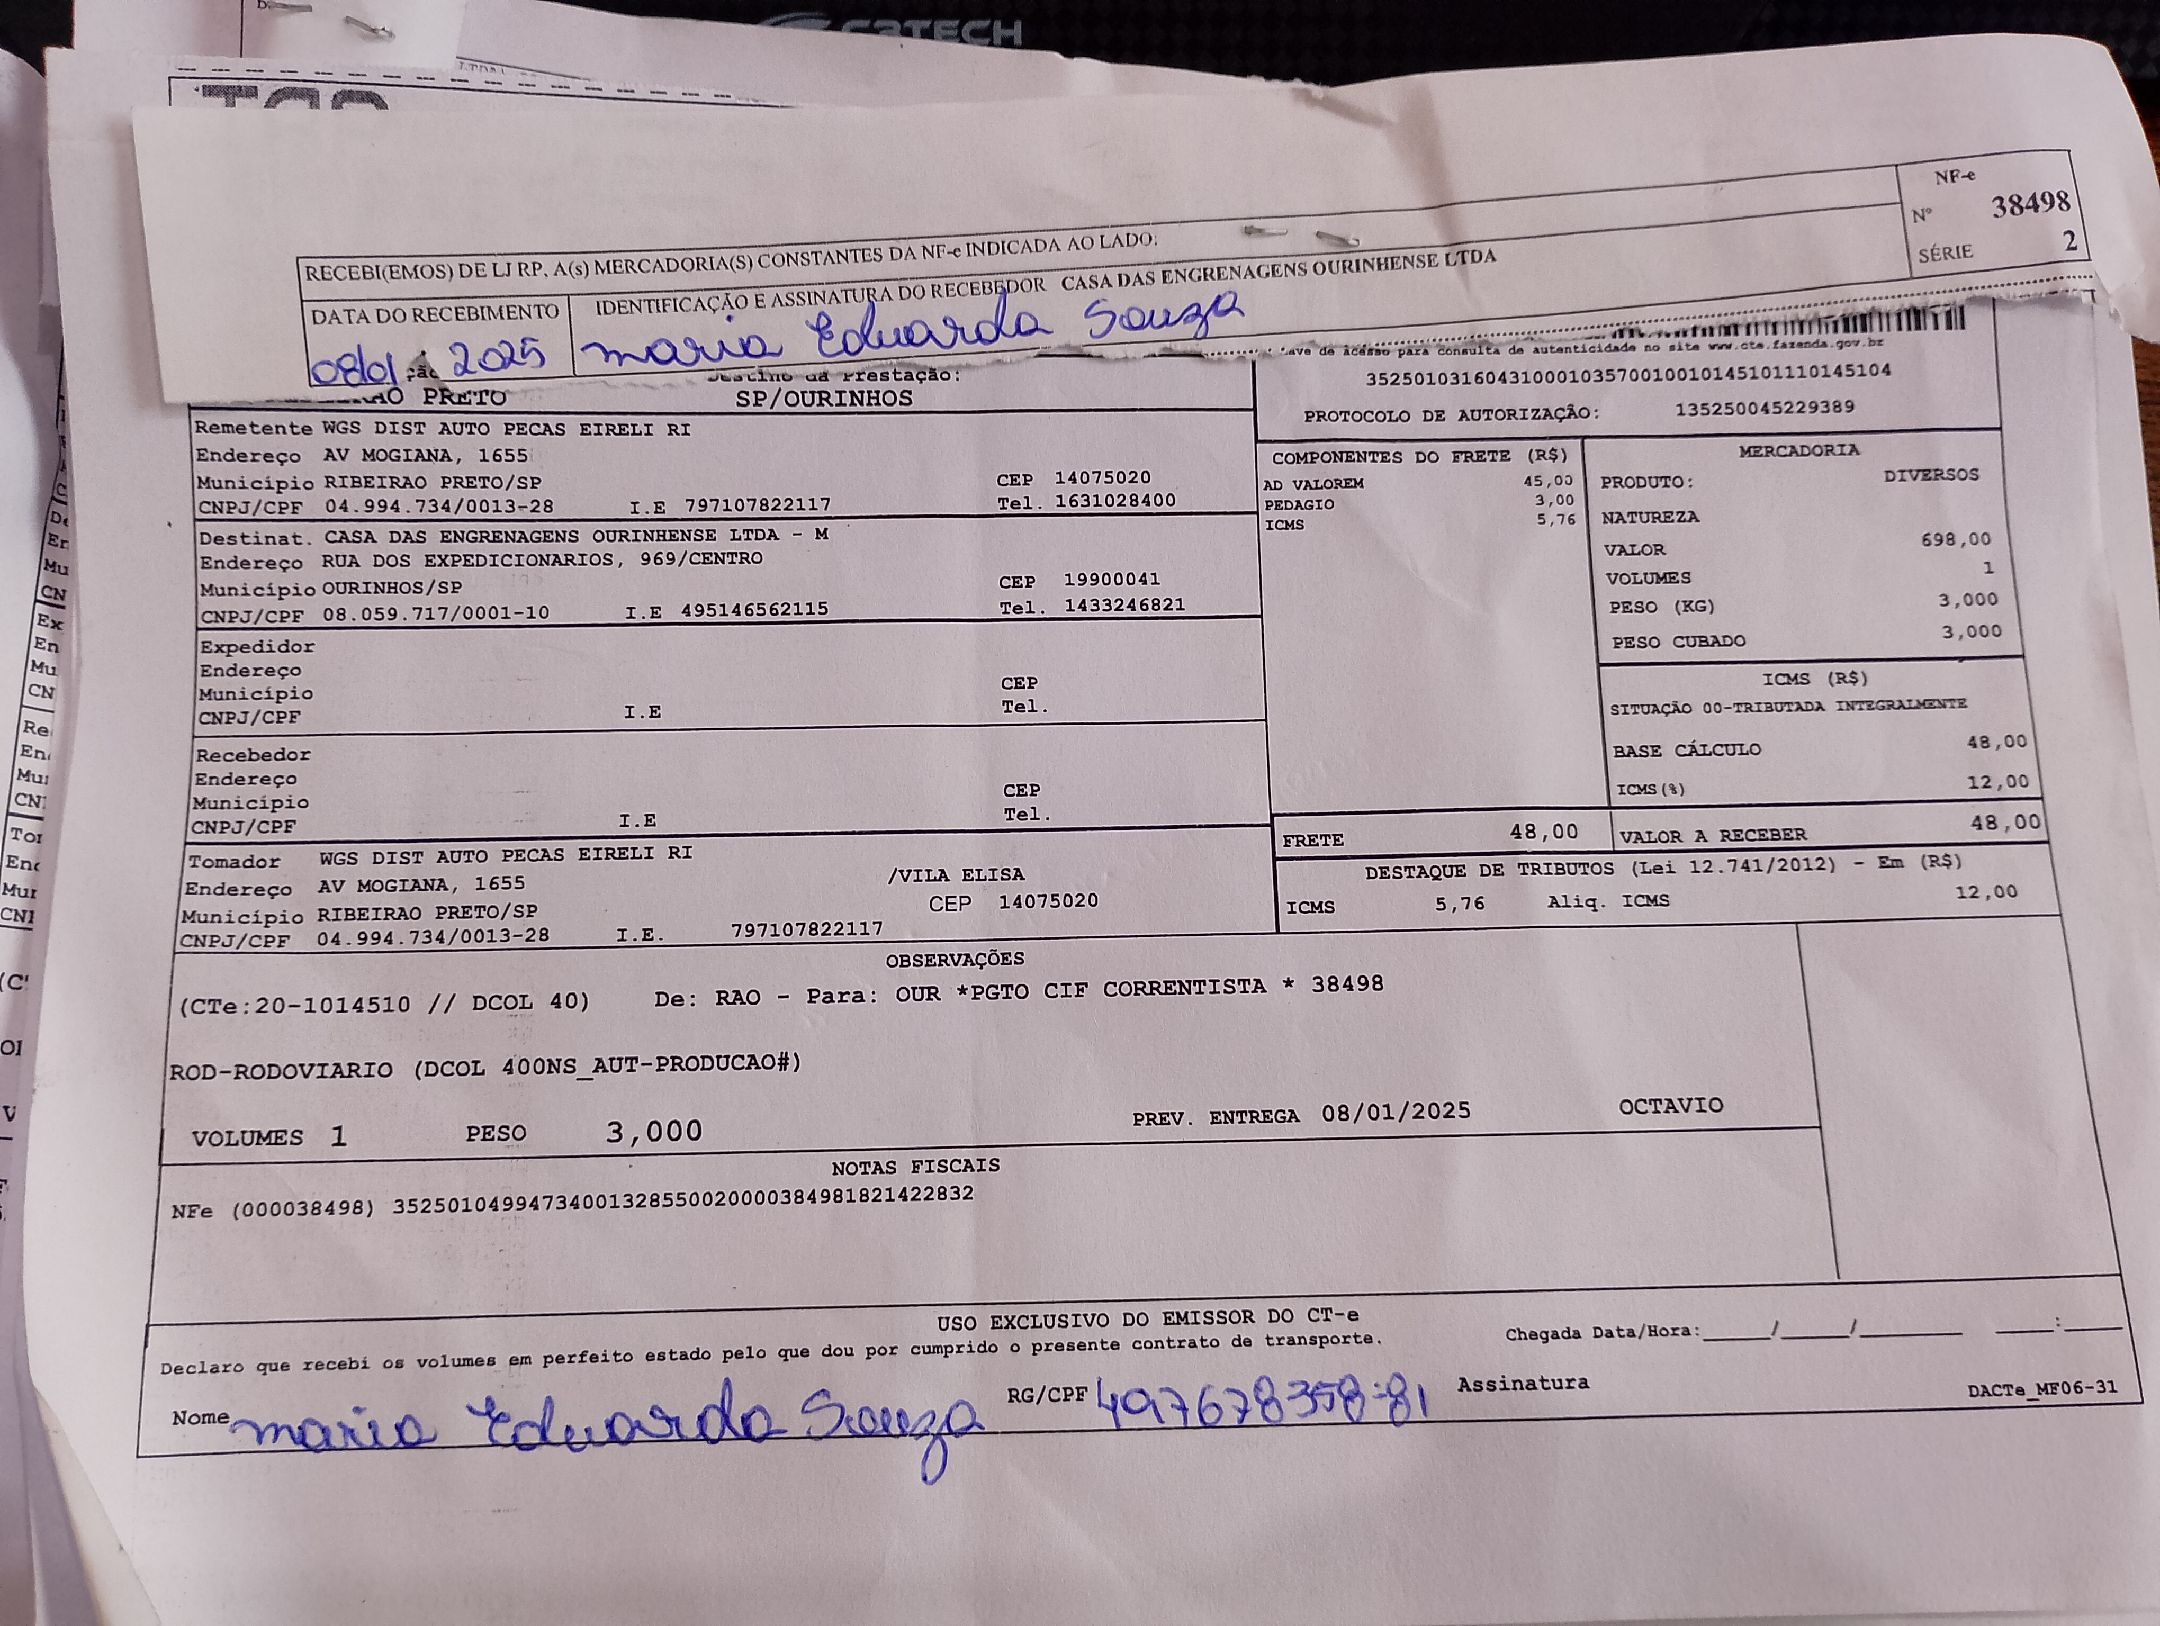 C3TECH
RECEBI(EMOS) DE LJ RP, A(s) MERCADORIA(S) CONSTANTES DA NF-e INDICADA AO LADO:
NF-e
Nº 38498
SÉRIE 2
DATA DO RECEBIMENTO
IDENTIFICAÇÃO E ASSINATURA DO RECEBEDOR CASA DAS ENGRENAGENS OURINHENSE LTDA
08/01 2025 maria Eduarda Souza
Destino da Prestação:
PRETO SP/OURINHOS
ave de acesso para consulta de autenticidade no site www.cte.fazenda.gov.br
35250103160431000103570010010145101110145104
PROTOCOLO DE AUTORIZAÇÃO: 135250045229389
Remetente WGS DIST AUTO PECAS EIRELI RI
Endereço AV MOGIANA, 1655
Município RIBEIRAO PRETO/SP CEP 14075020
CNPJ/CPF 04.994.734/0013-28 I.E 797107822117 Tel. 1631028400
Destinat. CASA DAS ENGRENAGENS OURINHENSE LTDA - M
Endereço RUA DOS EXPEDICIONARIOS, 969/CENTRO
Município OURINHOS/SP CEP 19900041
CNPJ/CPF 08.059.717/0001-10 I.E 495146562115 Tel. 1433246821
Expedidor
Endereço
Município CEP
CNPJ/CPF I.E Tel.
Recebedor
Endereço
Município CEP
CNPJ/CPF I.E Tel.
Tomador WGS DIST AUTO PECAS EIRELI RI
Endereço AV MOGIANA, 1655 /VILA ELISA
Município RIBEIRAO PRETO/SP CEP 14075020
CNPJ/CPF 04.994.734/0013-28 I.E. 797107822117
COMPONENTES DO FRETE (R$)
AD VALOREM 45,00
PEDAGIO 3,00
ICMS 5,76
MERCADORIA
PRODUTO: DIVERSOS
NATUREZA
VALOR 698,00
VOLUMES 1
PESO (KG) 3,000
PESO CUBADO 3,000
ICMS (R$)
SITUAÇÃO 00-TRIBUTADA INTEGRALMENTE
BASE CÁLCULO 48,00
ICMS(%) 12,00
FRETE 48,00 VALOR A RECEBER 48,00
DESTAQUE DE TRIBUTOS (Lei 12.741/2012) - Em (R$)
ICMS 5,76 Aliq. ICMS 12,00
OBSERVAÇÕES
(CTe:20-1014510 // DCOL 40) De: RAO - Para: OUR *PGTO CIF CORRENTISTA * 38498
ROD-RODOVIARIO (DCOL 400NS_AUT-PRODUCAO#)
VOLUMES 1 PESO 3,000 PREV. ENTREGA 08/01/2025 OCTAVIO
NOTAS FISCAIS
NFe (000038498) 35250104994734001328550020000384981821422832
USO EXCLUSIVO DO EMISSOR DO CT-e
Declaro que recebi os volumes em perfeito estado pelo que dou por cumprido o presente contrato de transporte.
Chegada Data/Hora:_____/_____/________ ____:____
Nome maria Eduarda Souza RG/CPF 497678358-81 Assinatura
DACTe_MF06-31